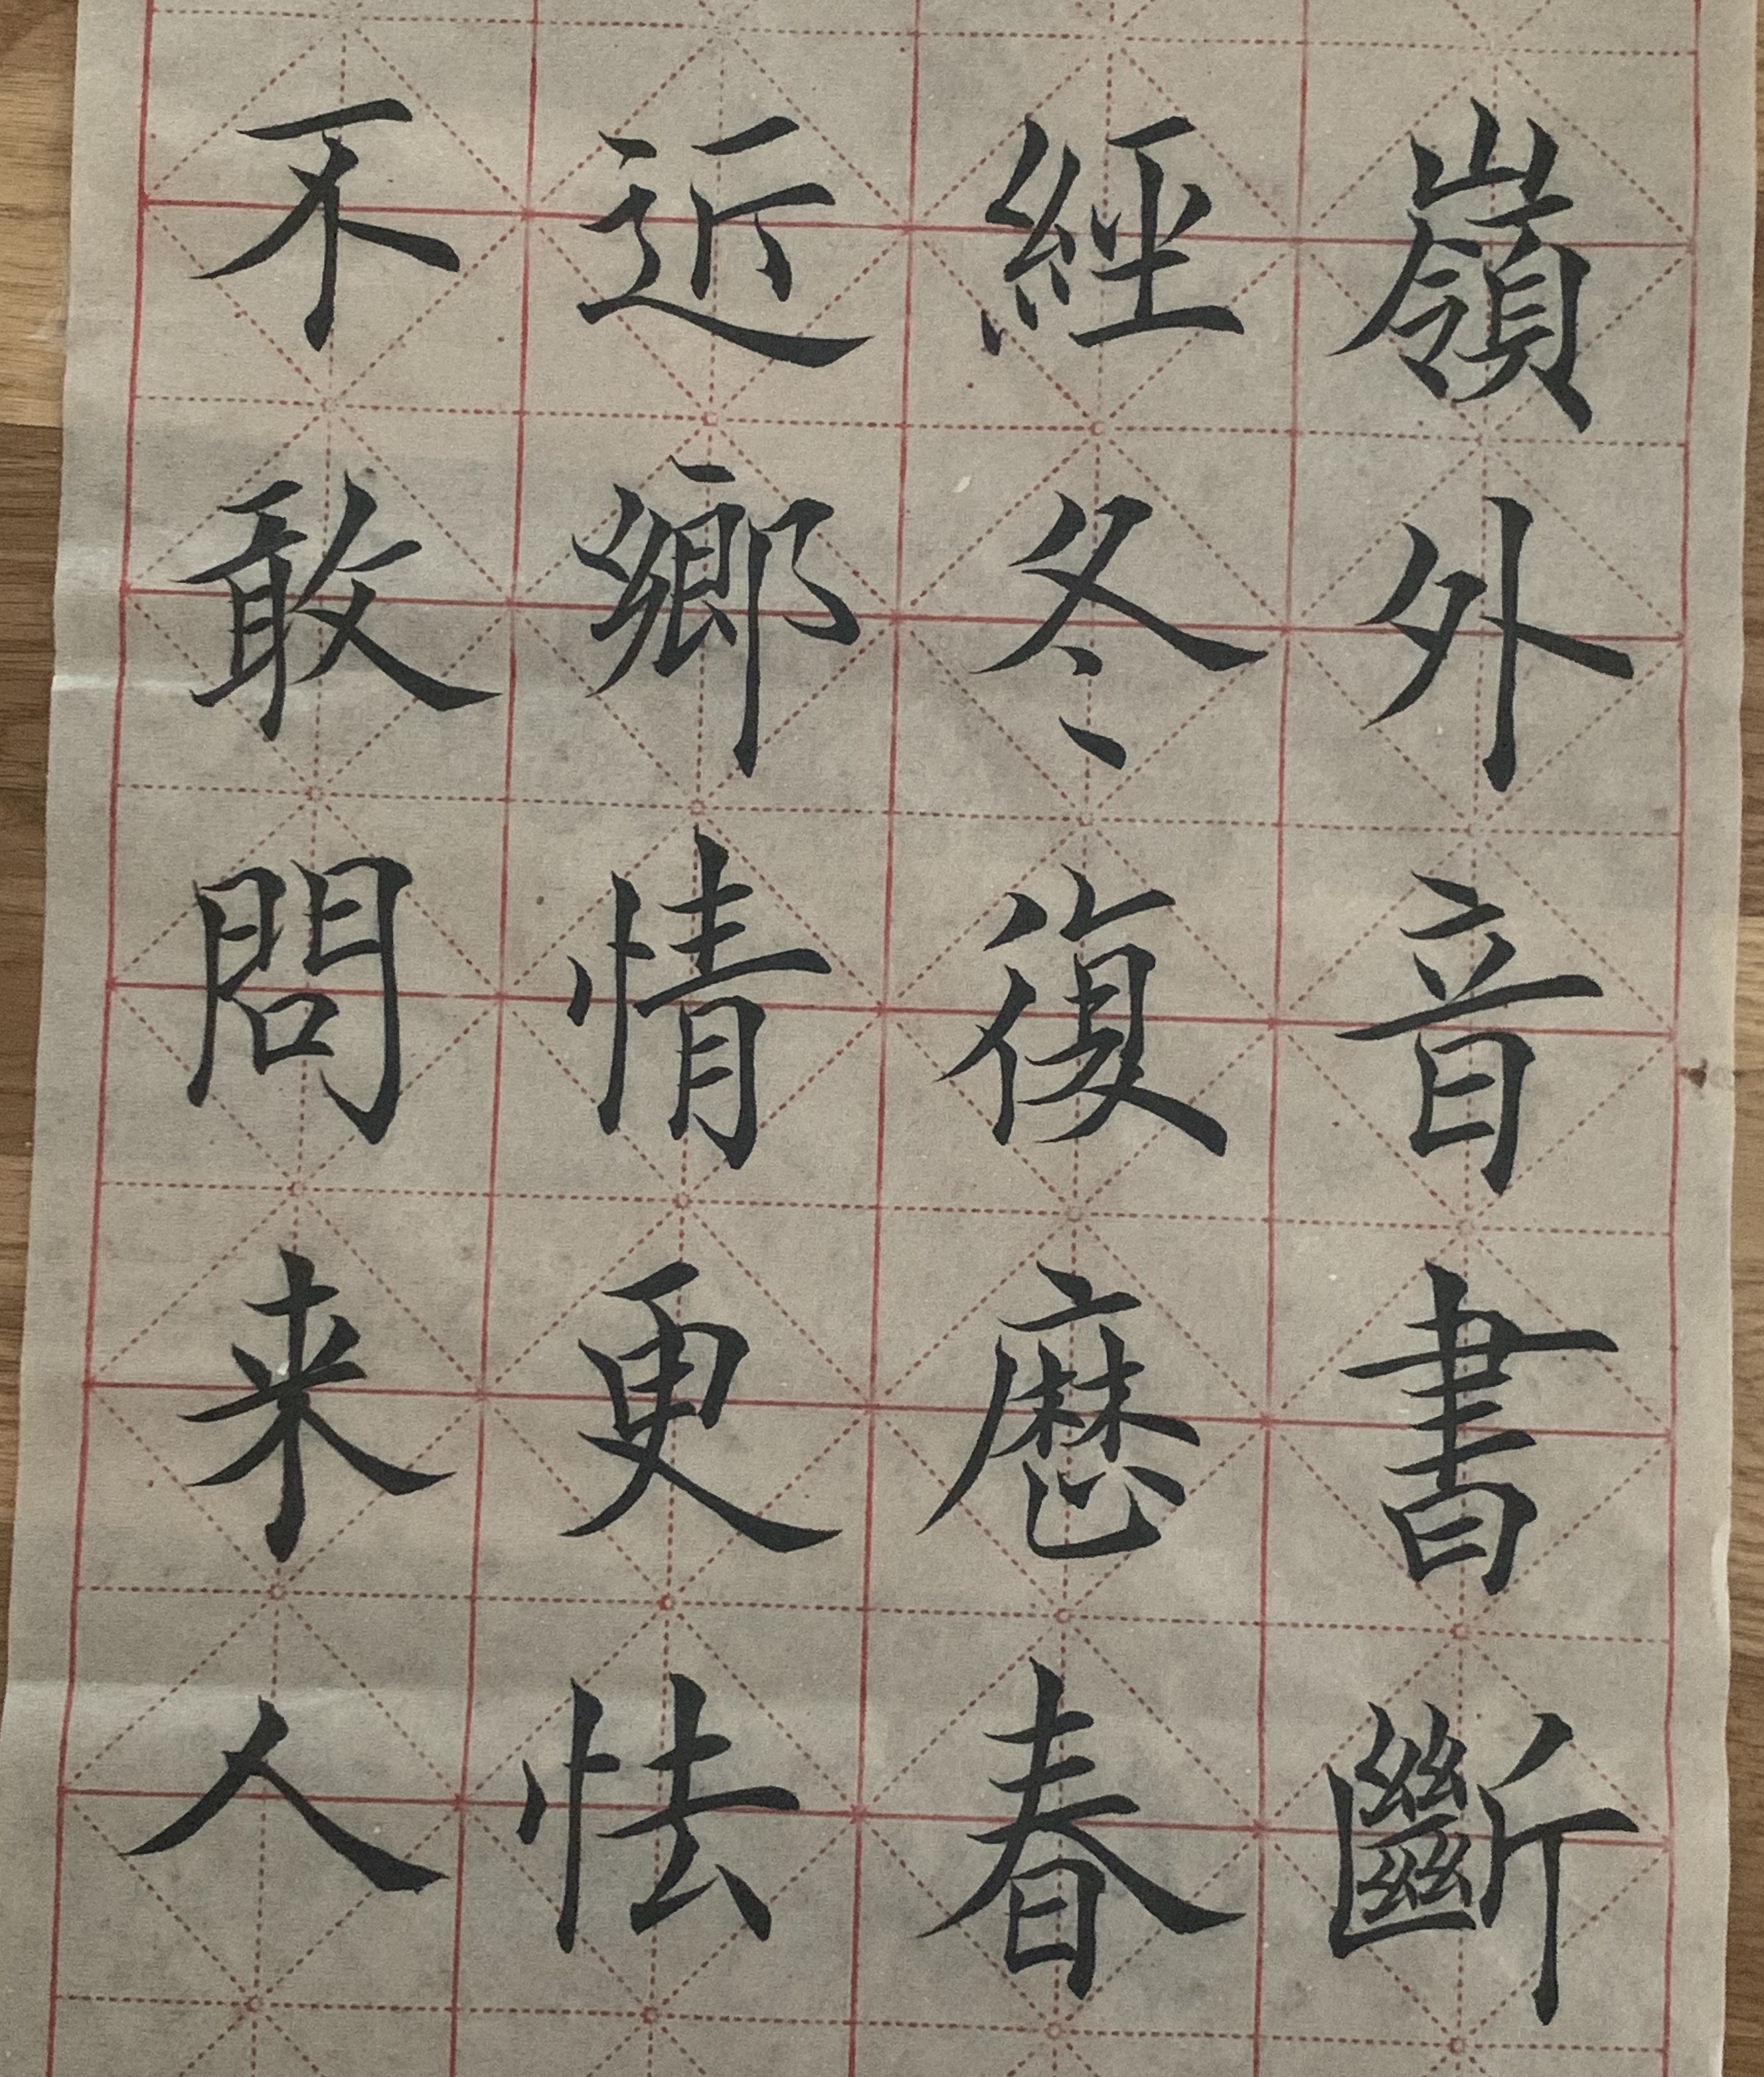 嶺外音書斷
經冬復歷春
近鄉情更怯
不敢問来人